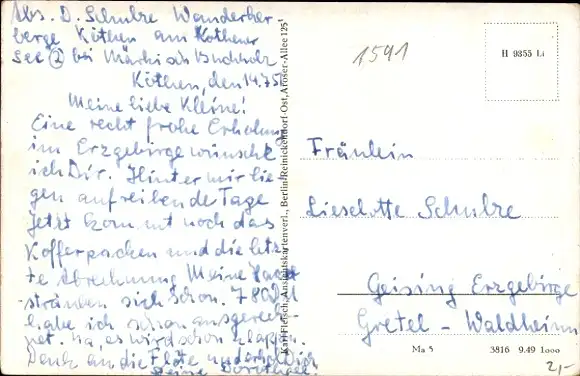 Abs. D. Schulze Wanderher-
berge Köthen am Köthener
See ② bei Märkisch Buchholz
Köthen, den 14.7.51
Meine liebe Kleine!
Eine recht frohe Erholung
im Erzgebirge wünsche
ich Dir. Hinter mir lie-
gen aufreibende Tage
Jetzt kommt noch das
Kofferpacken und die letz-
te Abrechnung Meine
sträuben sich schon. 780
habe ich schon ausgerech-
net. Na, es wird schon klappen.
Denk an die Flöte und erhol Dich
Deine Dorothea.
Karl Fleisch, Ansichtskartenverl., Berlin-Reinickendorf-Ost, Aroser-Allee 125
1591
H 9355 Li
Fräulein
Lieselotte Schulze
Geising Erzgebirge
Gretel-Waldheim
Ma 5 3816 9.49 1000
2,-